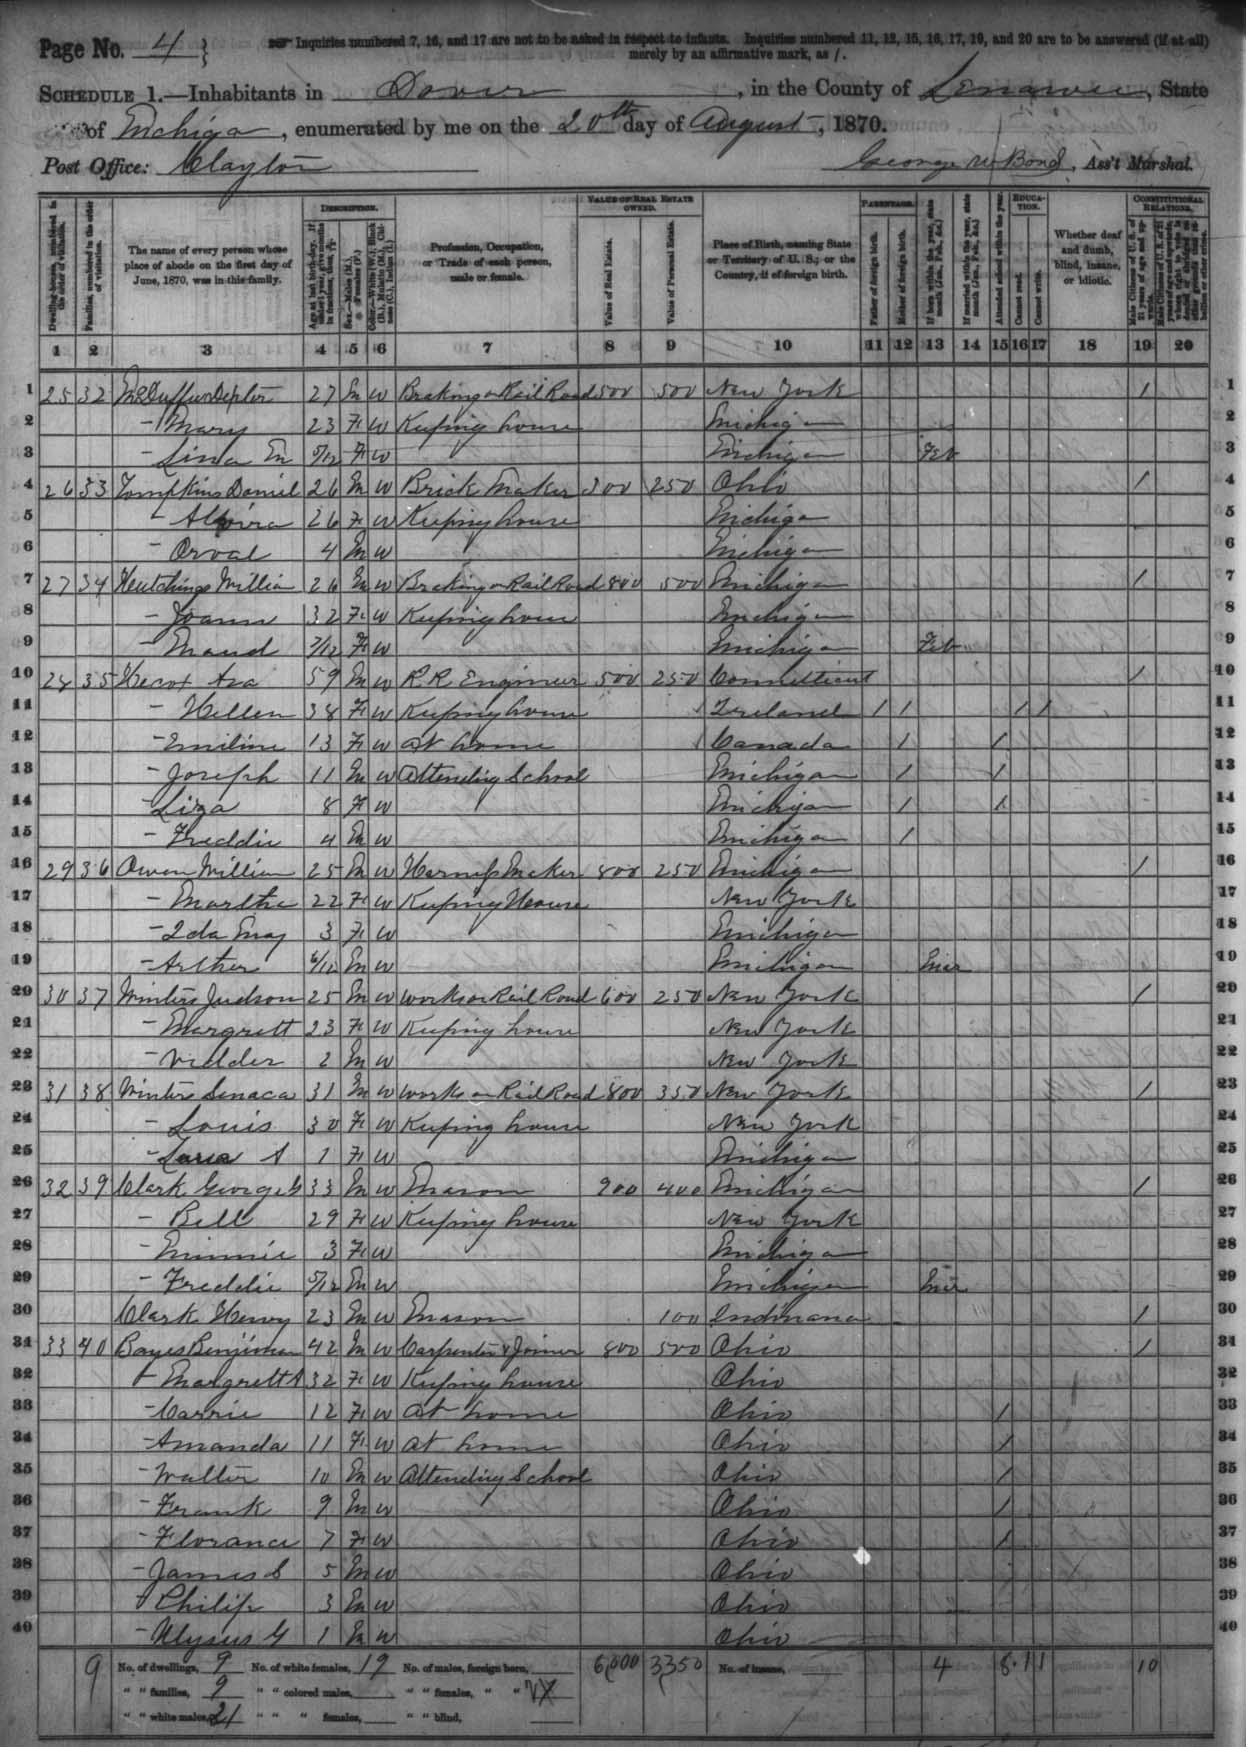 Page No. 4 } Inquiries numbered 7, 16, and 17 are not to be asked in respect to infants. Inquiries numbered 11, 12, 15, 16, 17, 19, and 20 are to be answered (if at all)
merely by an affirmative mark, as /.
SCHEDULE 1.—Inhabitants in Dover, in the County of Lenawee, State
of Michigan, enumerated by me on the 20th day of August, 1870.
Post Office: Clayton George W Bond, Ass't Marshal.
DESCRIPTION. VALUE OF REAL ESTATE OWNED. PARENTAGE. EDUCATION. CONSTITUTIONAL RELATIONS.
Dwelling-houses, numbered in the order of visitation.
Families, numbered in the order of visitation.
The name of every person whose place of abode on the first day of June, 1870, was in this family.
Sex.—Males (M.), Females (F.)
Profession, Occupation, or Trade of each person, male or female.
Value of Real Estate.
Value of Personal Estate.
Place of Birth, naming State or Territory of U. S.; or the Country, if of foreign birth.
Father of foreign birth.
Mother of foreign birth.
If born within the year, state month (Jan., Feb., &c.)
If married within the year, state month (Jan., Feb., &c.)
Attended school within the year.
Cannot read.
Cannot write.
Whether deaf and dumb, blind, insane, or idiotic.
1 2 3 4 5 6 7 8 9 10 11 12 13 14 15 16 17 18 19 20
1 25 32 27 M W Braking on Rail Road 500 500 New York / 1
2 – Mary 23 F W Keeping house Michigan 2
3 – Lina M 5/12 F W Michigan Feb 3
4 26 33 Tompkins Daniel 26 M W Brick Maker 300 250 Ohio / 4
5 – Almira 26 F W Keeping house Michigan 5
6 – Orval 4 M W Michigan 6
7 27 34 Hutchings William 26 M W Braking on Rail Road 800 500 Michigan / 7
8 – Joann 32 F W Keeping house Michigan 8
9 – Maud 7/12 F W Michigan Feb 9
10 28 35 Hecox Asa 59 M W R R Engineer 500 250 Connecticut / 10
11 – Hellen 38 F W Keeping house Ireland / / / / 11
12 – Emiline 13 F W at home Canada / / 12
13 – Joseph 11 M W Attending School Michigan / / 13
14 – Liza 8 F W Michigan / / 14
15 – Freddie 4 M W Michigan / 15
16 29 36 Owen William 25 M W Harness Maker 800 250 Michigan / 16
17 – Martha 22 F W Keeping House New York 17
18 – Ida May 3 F W Michigan 18
19 – Arther 6/12 M W Michigan Mar 19
20 30 37 Winters Judson 25 M W Works on Rail Road 600 250 New York / 20
21 – Margrett 23 F W Keeping house New York 21
22 – Vidder 2 M W New York 22
23 31 38 Winters Senaca 31 M W Works on Rail Road 800 350 New York / 23
24 – Louis 30 F W Keeping house New York 24
25 – A 1 F W Michigan 25
26 32 39 Clark George G 33 M W Mason 900 400 Michigan / 26
27 – Bell 29 F W Keeping house New York 27
28 – Minnie 3 F W Michigan 28
29 – Freddie 5/12 M W Michigan Mar 29
30 Clark Henry 23 M W Mason 100 Indiana / 30
31 33 40 Bayes Benjiman 42 M W Carpenter & Joiner 800 500 Ohio / 31
32 – Margrett A 32 F W Keeping house Ohio 32
33 – Carrie 12 F W at home Ohio / 33
34 – Amanda 11 F W at home Ohio / 34
35 – Walter 10 M W Attending School Ohio / 35
36 – Frank 9 M W Ohio / 36
37 – Florance 7 F W Ohio / 37
38 – James S 5 M W Ohio 38
39 – Philip 3 M W Ohio 39
40 – Ulysus G 1 M W Ohio 40
9 No. of dwellings, 9 No. of white females, 19 No. of males, foreign born, 6000 3350 No. of insane, 4 8 1 1 10
" " families, 9 " " colored males, " " females, " "
" " white males, 21 " " " females, " " blind,